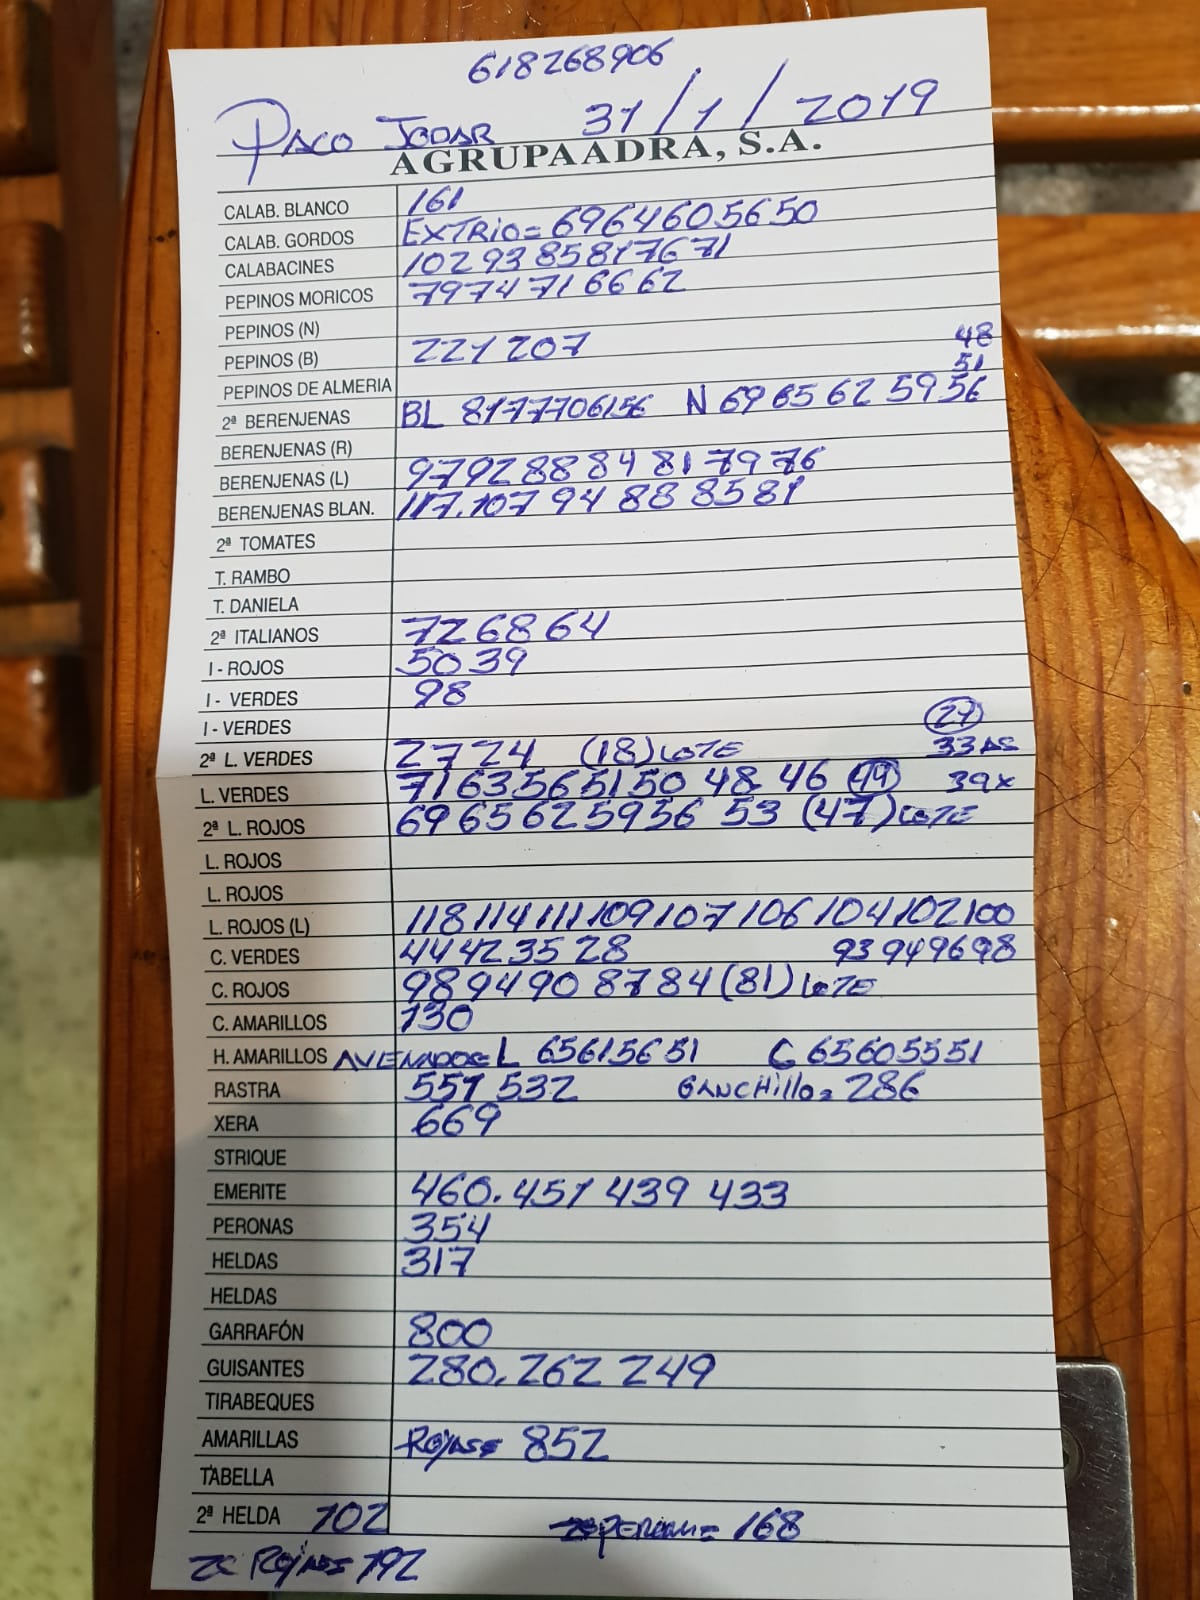 618268906
PACO JODAR 31/1/2019
AGRUPAADRA, S.A.
CALAB. BLANCO 161
CALAB. GORDOS EXTRIO= 6964605650
CALABACINES 102 93 85 81 76 71
PEPINOS MORICOS 7974716662
PEPINOS (N)
PEPINOS (B) 221 207 48
PEPINOS DE ALMERIA 51
2ª BERENJENAS BL 8177706156 N 69 65 62 59 56
BERENJENAS (R)
BERENJENAS (L) 9792888481 79 76
BERENJENAS BLAN. 117.107 94 88 8581
2ª TOMATES
T. RAMBO
T. DANIELA
2ª ITALIANOS 726864
I - ROJOS 5039
I - VERDES 98
I - VERDES (27)
2ª L. VERDES 2724 (18) LOTE 33 AS
L. VERDES 7163565150 48 46 (44) 39x
2ª L. ROJOS 6965625956 53 (47) LOTE
L. ROJOS
L. ROJOS
L. ROJOS (L) 118 114 111 109 107 106 104 102 100
C. VERDES 44423528 93949698
C. ROJOS 989490 8784 (81) LOTE
C. AMARILLOS 130
H. AMARILLOS L 65615651 C 65605551
RASTRA 551 532 GANCHILLO= 286
XERA 669
STRIQUE
EMERITE 460.451 439 433
PERONAS 354
HELDAS 317
HELDAS
GARRAFÓN 800
GUISANTES 280.262 249
TIRABEQUES
AMARILLAS ROJAS= 852
TABELLA
2ª HELDA 102 168
ROJAS= 192